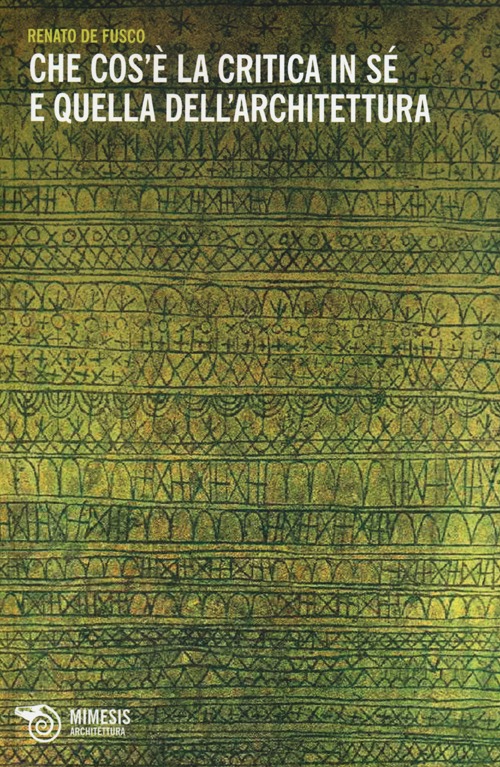 RENATO DE FUSCO
CHE COS'È LA CRITICA IN SÉ
E QUELLA DELL'ARCHITETTURA
MIMESIS
ARCHITETTURA